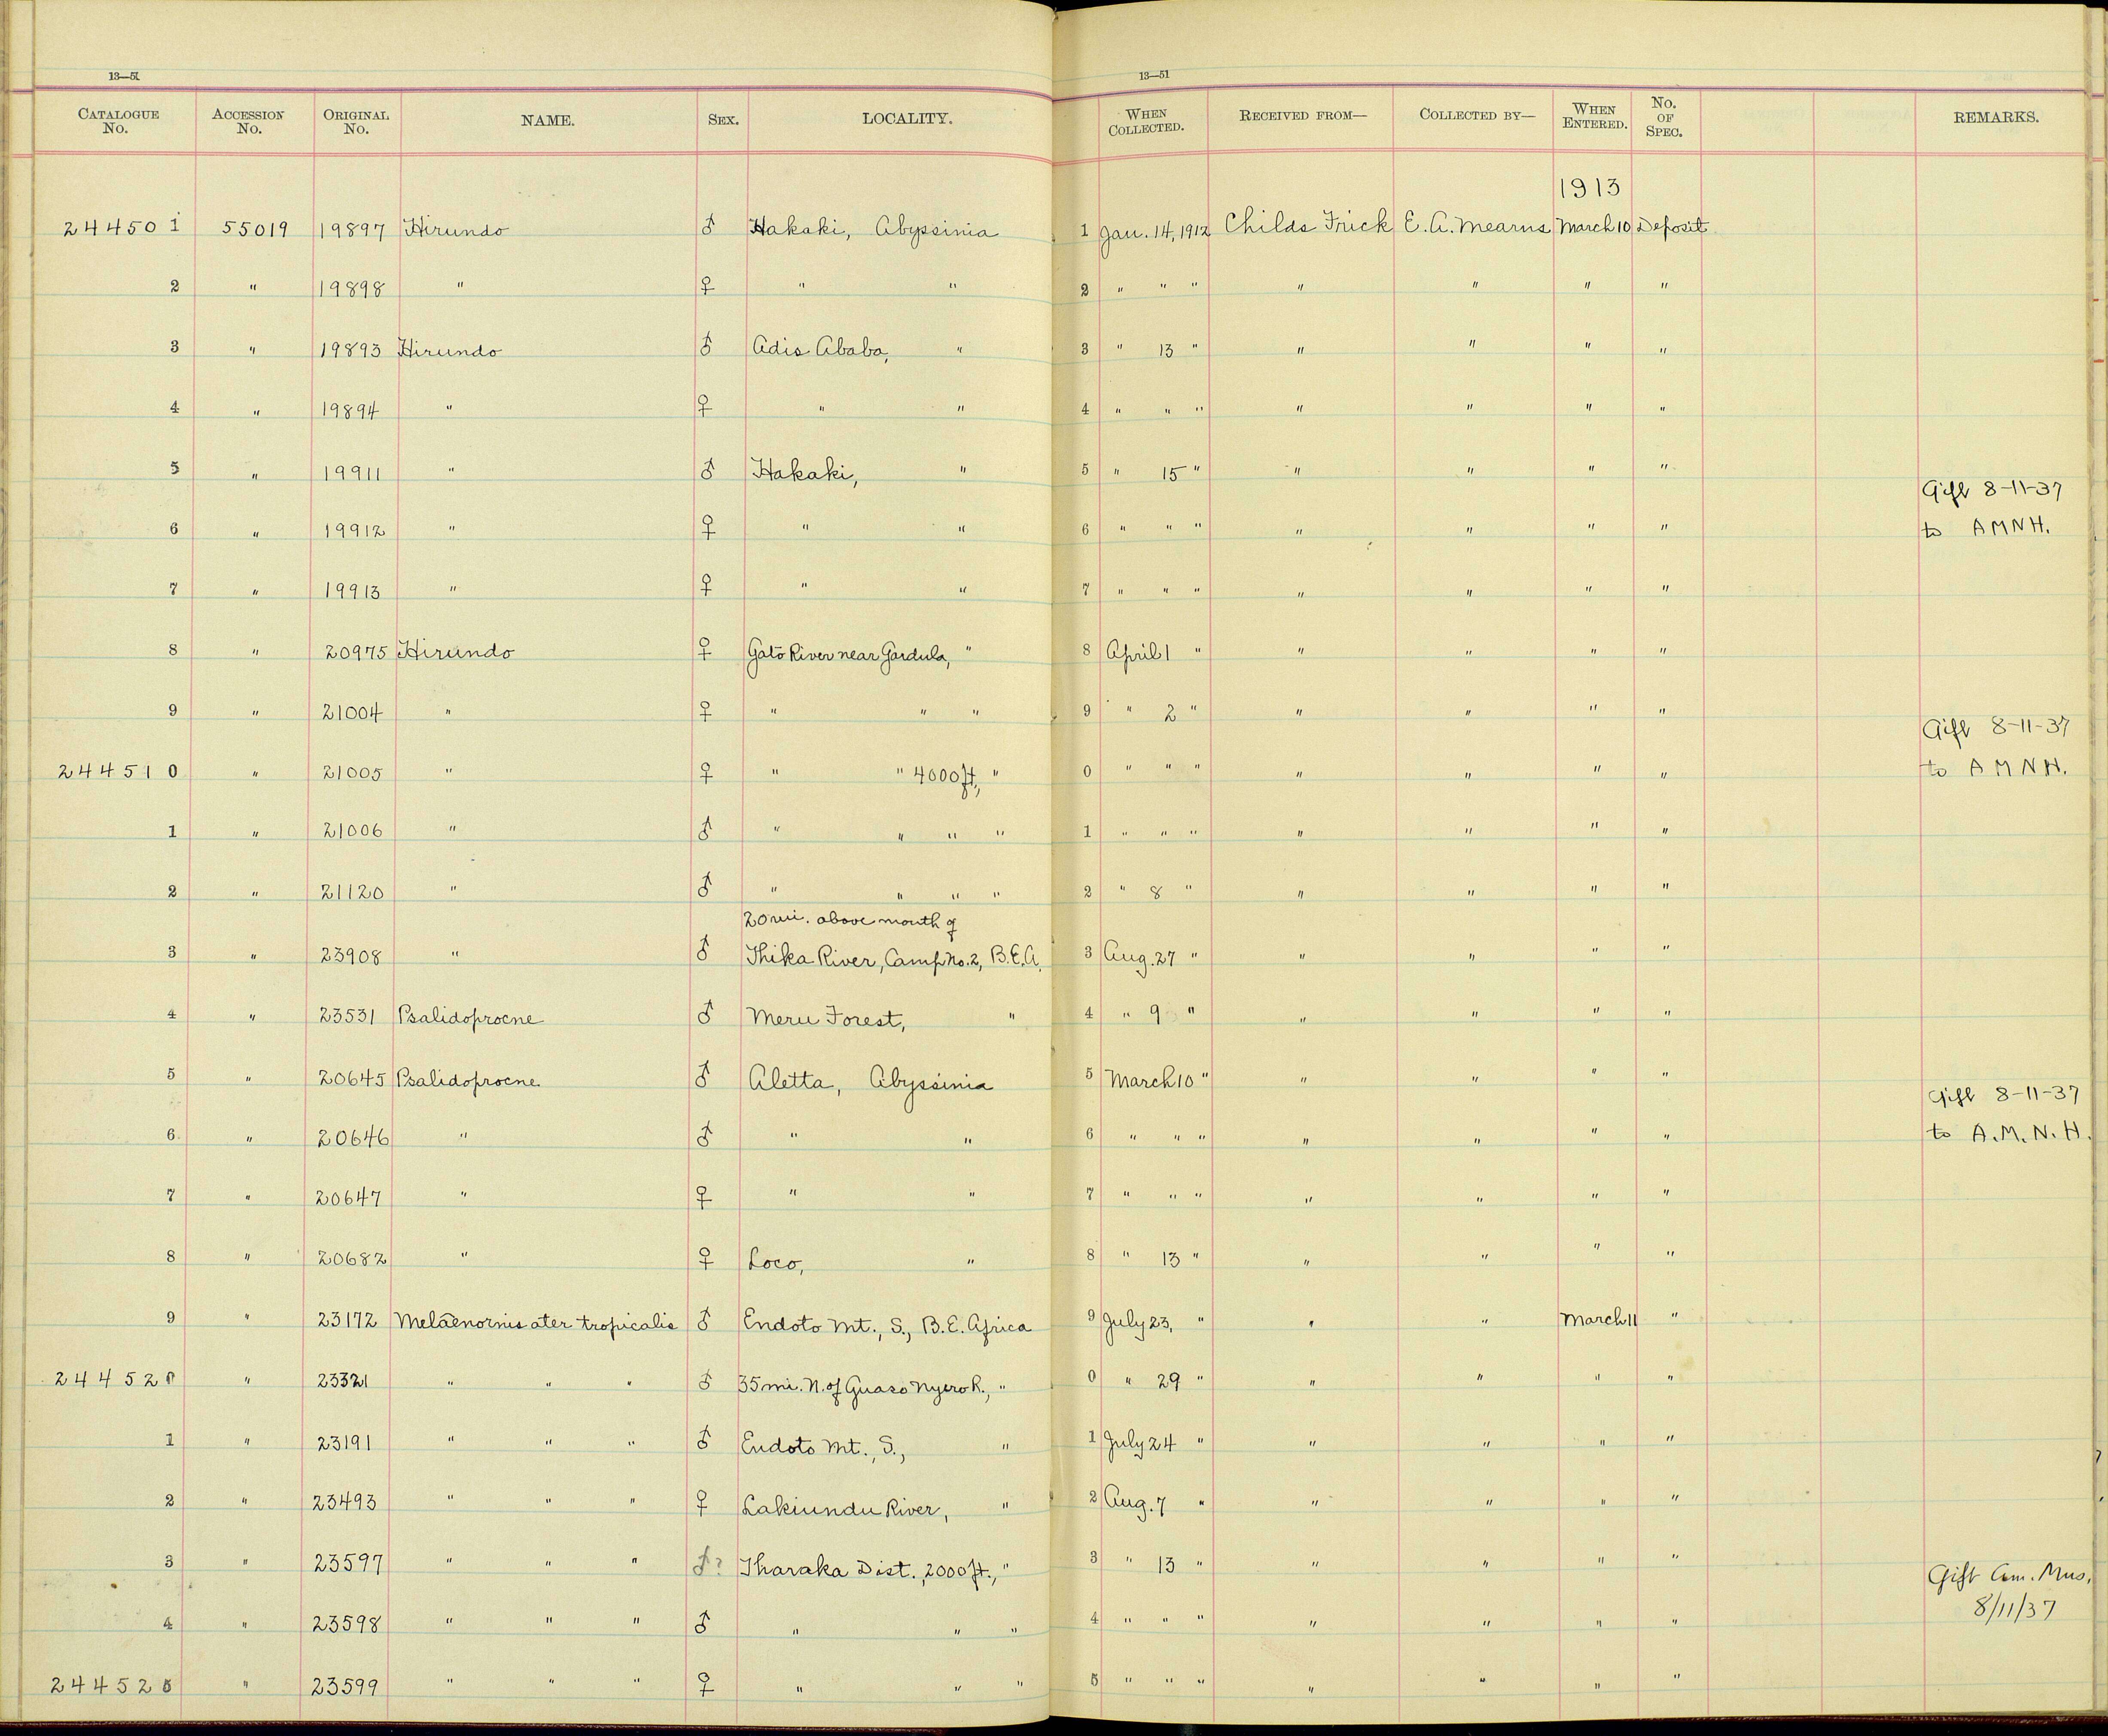 13—51 13—51
CATALOGUE No. ACCESSION No. ORIGINAL No. NAME. SEX. LOCALITY. WHEN COLLECTED. RECEIVED FROM— COLLECTED BY— WHEN ENTERED. No. OF SPEC. REMARKS.
1913
244501 55019 19897 Hirundo ♂ Hakaki, Abyssinia 1 Jan. 14, 1912 Childs Frick E. A. Mearns March 10 Deposit
2 " 19898 " ♀ " " 2 " " " " " " "
3 " 19893 Hirundo ♂ Adis Ababa, " 3 " 13 " " " " "
4 " 19894 " ♀ " " 4 " " " " " " "
5 " 19911 " ♂ Hakaki, " 5 " 15 " " " " "
Gift 8-11-37
6 " 19912 " ♀ " " 6 " " " " " " " to AMNH.
7 " 19913 " ♀ " " 7 " " " " " " "
8 " 20975 Hirundo ♀ Gato River near Gardula, " 8 April 1 " " " " "
9 " 21004 " ♀ " " " 9 " 2 " " " " "
Gift 8-11-37
244510 " 21005 " ♀ " " 4000 ft, " 0 " " " " " " " to AMNH.
1 " 21006 " ♂ " " " " 1 " " " " " " "
2 " 21120 " ♂ " " " " 2 " 8 " " " " "
20 mi. above mouth of
3 " 23908 " ♂ Thika River, Camp No. 2, B.E.A. 3 Aug. 27 " " " " "
4 " 23531 Psalidoprocne ♂ Meru Forest, " 4 " 9 " " " " "
5 " 20645 Psalidoprocne ♂ Aletta, Abyssinia 5 March 10 " " " " "
Gift 8-11-37
6 " 20646 " ♂ " " 6 " " " " " " " to A.M.N.H.
7 " 20647 " ♀ " " 7 " " " " " " "
8 " 20682 " ♀ Loco, " 8 " 13 " " " " "
9 " 23172 Melaenornis ater tropicalis ♂ Endoto Mt., S., B.E. Africa 9 July 23, " " " March 11 "
244520 " 23321 " " " ♂ 35 mi. N. of Guaso Nyero R., " 0 " 29 " " " " "
1 " 23191 " " " ♂ Endoto Mt., S., " 1 July 24 " " " " "
2 " 23493 " " " ♀ Lakiundu River, " 2 Aug. 7 " " " " "
3 " 23597 " " " ♂? Tharaka Dist., 2000 ft., " 3 " 13 " " " " " Gift Am. Mus.
8/11/37
4 " 23598 " " " ♂ " " " 4 " " " " " " "
244525 " 23599 " " " ♀ " " " 5 " " " " " " "